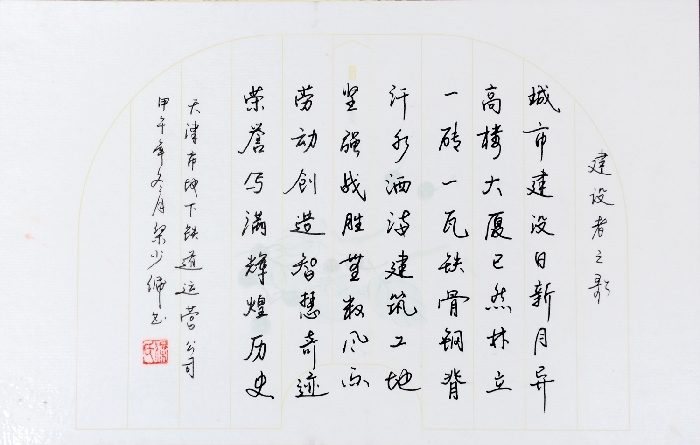 建设者之歌
城市建设日新月异
高楼大厦已然林立
一砖一瓦铁骨钢脊
汗水洒满建筑工地
坚强战胜无数风雨
劳动创造智慧奇迹
荣誉写满辉煌历史
天津市地下铁道运营公司
甲午年冬月梁少绵书